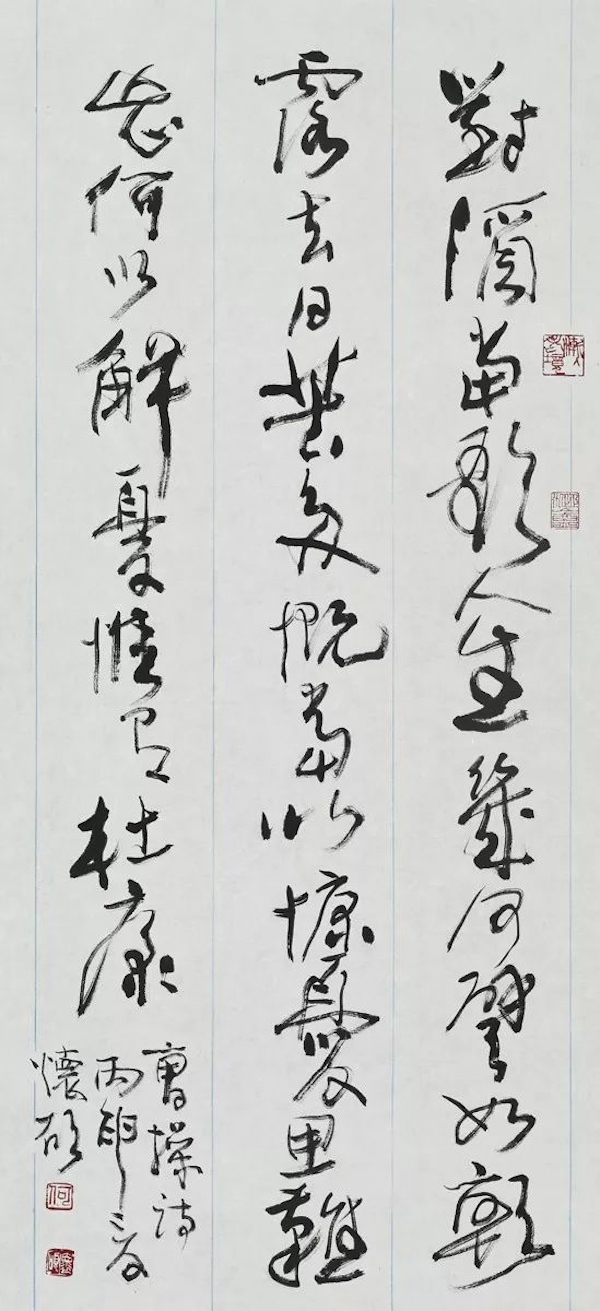 對酒當歌人生幾何譬如朝
露去日苦多慨當以慷憂思難
忘何以解憂惟有杜康
曹操詩
丙申夏
懷碩
何
懷碩